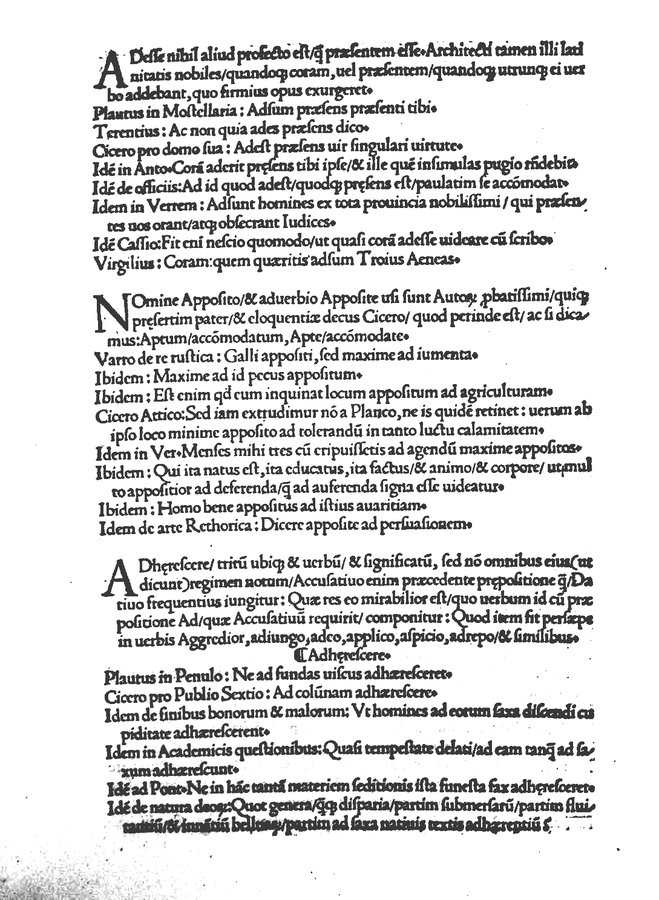 ADesse nihil aliud profecto est/q̃ præsentem esse. Architecti tamen illi lati
nitatis nobiles/quandoqꝫ coram, uel præsentem/quandoqꝫ utrunqꝫ ei uer
bo addebant, quo firmius opus exurgeret.
Plautus in Mostellaria : Adsum præsens præsenti tibi.
Terentius : Ac non quia ades præsens dico.
Cicero pro domo sua : Adest præsens uir singulari uirtute.
Idē in Anto. Corā aderit pręsens tibi ipse/& ille quē insimulas pugio rñdebit.
Idē de officiis: Ad id quod adest/quodqꝫ pręsens est/paulatim se accōmodat.
Idem in Verrem : Adsunt homines ex tota prouincia nobilissimi / qui præsen-
tes uos orant/atqꝫ obsecrant Iudices.
Idē Cassio: Fit enī nescio quomodo/ut quasi corā adesse uideare cū scribo.
Virgilius : Coram: quem quæritis adsum Troius Aeneas.
NOmine Apposito/& aduerbio Apposite usi sunt Autoꝝ ꝓbatissimi/quiqꝫ
pręsertim pater/& eloquentiæ decus Cicero/ quod perinde est/ ac si dica-
mus: Aptum/accōmodatum, Apte/accōmodate.
Varro de re rustica : Galli appositi, sed maxime ad iumenta.
Ibidem : Maxime ad id pecus appositum.
Ibidem : Est enim qd̄ cum inquinat locum appositum ad agriculturam.
Cicero Attico: Sed iam extrudimur nō a Planco, ne is quidē retinet : uerum ab
ipso loco minime apposito ad tolerandū in tanto luctu calamitatem.
Idem in Ver. Menses mihi tres cū eripuissetis ad agendū maxime appositos.
Ibidem : Qui ita natus est, ita educatus, ita factus/& animo/& corpore/ ut mul
to appositior ad deferenda/q̃ ad auferenda signa esse uideatur.
Ibidem : Homo bene appositus ad istius auaritiam.
Idem de arte Rethorica : Dicere apposite ad persuasionem.
ADhęrescere/ tritū ubiqꝫ & uerbū/ & significatū, sed nō omnibus eius(ut
dicunt)regimen notum/Accusatiuo enim præcedente prępositione q̃/Da
tiuo frequentius iungitur : Quæ res eo mirabilior est/quo uerbum id cū præ
positione Ad/quæ Accusatiuū requirit/ componitur : Quod item fit persæpe
in uerbis Aggredior, adiungo, adeo, applico, aspicio, adrepo/& similibus.
¶Adhęrescere.
Plautus in Penulo : Ne ad fundas uiscus adhæresceret.
Cicero pro Publio Sextio : Ad colūnam adhærescere.
Idem de finibus bonorum & malorum: Vt homines ad eorum saxa discendi cu
piditate adhærescerent.
Idem in Academicis questionibus: Quasi tempestate delati/ad eam tanqꝫ ad sa-
xum adhærescunt.
Idē ad Pont. Ne in hāc tantā materiem seditionis ista funesta fax adhęresceret.
Idē de natura deoꝝ: Quot genera/q̃qꝫ disparia/partim submersarū/partim flui-
tantiū/& innātiū belluaꝝ/partim ad saxa natiuis textis adhęrentiū ⸫